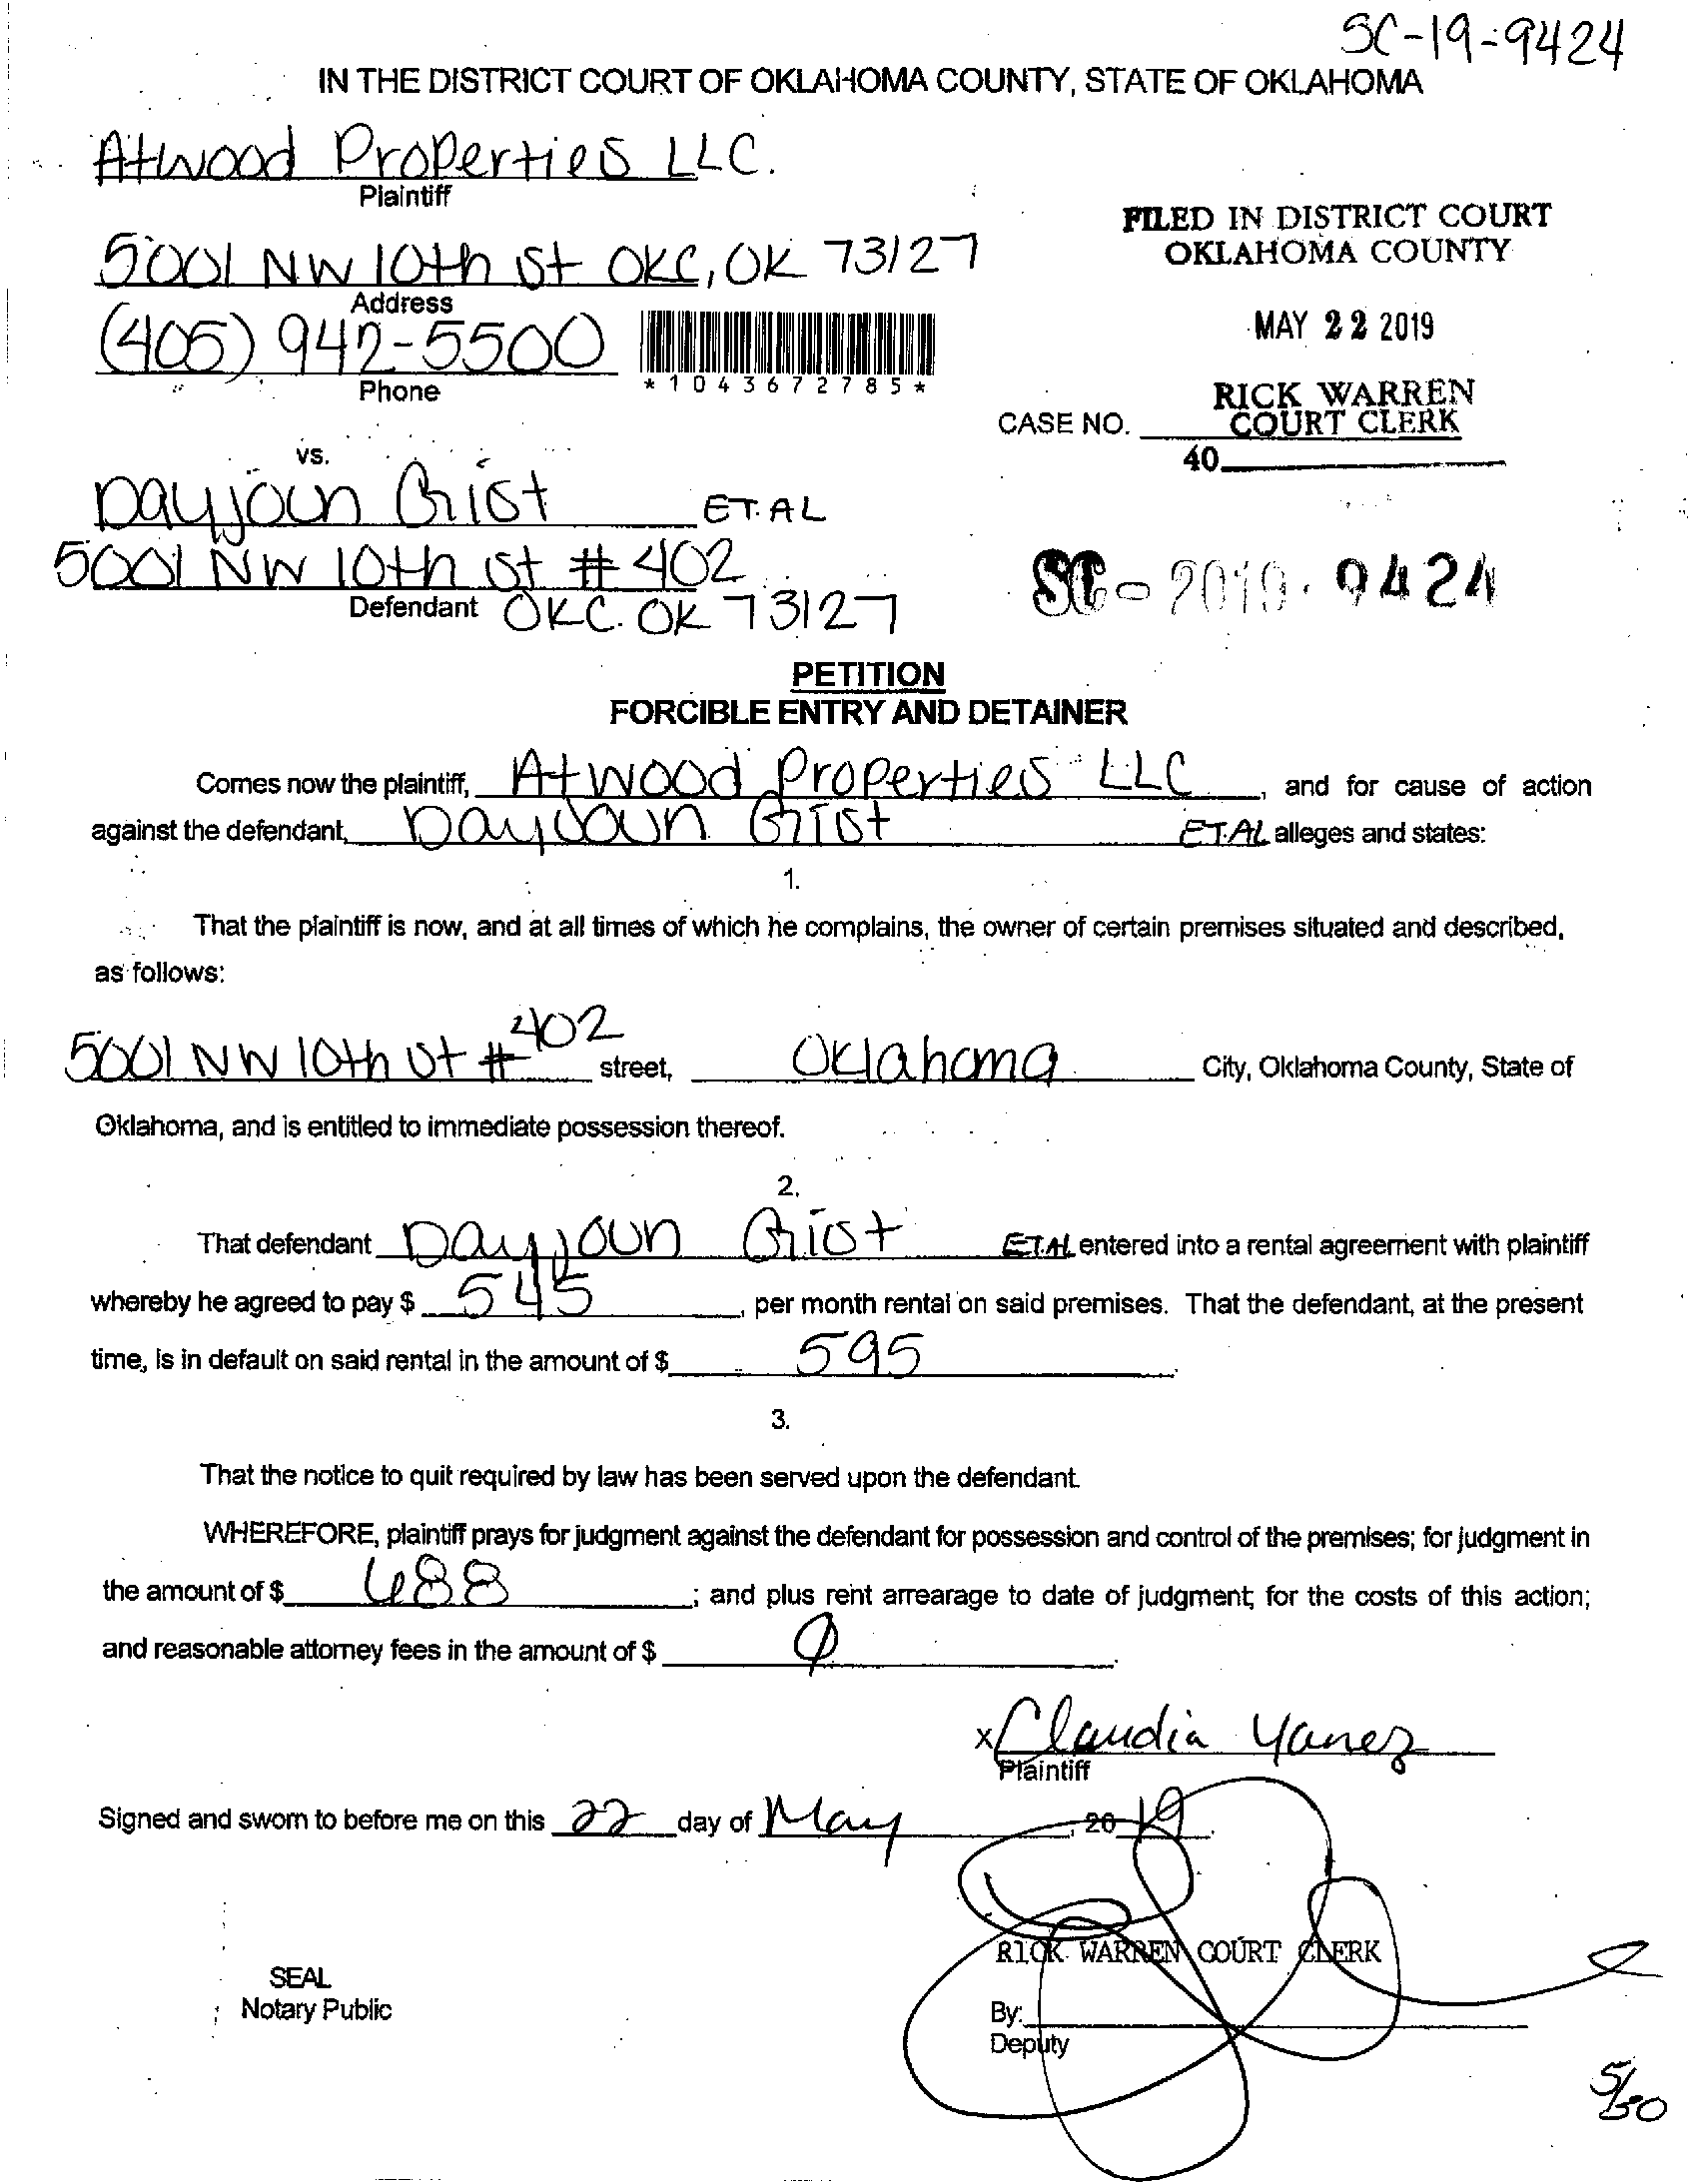 SC-19-9424
IN THE DISTRICT COURT OF OKLAHOMA COUNTY, STATE OF OKLAHOMA
Atwood Properties LLC.
Plaintiff
5001 NW 10th St OKC, OK 73127
Address
(405) 942-5500
Phone
*1043672785*
FILED IN DISTRICT COURT
OKLAHOMA COUNTY
MAY 22 2019
RICK WARREN
COURT CLERK
CASE NO.
40
vs.
Dayjoun Grist ET. AL
5001 NW 10th St # 402
Defendant OKC. OK 73127
SC - 2019 - 9424
PETITION
FORCIBLE ENTRY AND DETAINER
Comes now the plaintiff, Atwood Properties LLC, and for cause of action
against the defendant, Dayjoun Grist ET.AL alleges and states:
1.
That the plaintiff is now, and at all times of which he complains, the owner of certain premises situated and described,
as follows:
5001 NW 10th St # 402 street, Oklahoma City, Oklahoma County, State of
Oklahoma, and is entitled to immediate possession thereof.
2.
That defendant Dayjoun Grist ET.AL entered into a rental agreement with plaintiff
whereby he agreed to pay $ 545, per month rental on said premises. That the defendant, at the present
time, is in default on said rental in the amount of $ 595.
3.
That the notice to quit required by law has been served upon the defendant.
WHEREFORE, plaintiff prays for judgment against the defendant for possession and control of the premises; for judgment in
the amount of $ 688; and plus rent arrearage to date of judgment; for the costs of this action;
and reasonable attorney fees in the amount of $ 0.
x Claudia Yanez
Plaintiff
Signed and sworn to before me on this 22 day of May, 2019.
RICK WARREN COURT CLERK
SEAL
Notary Public
By:
Deputy
5/30